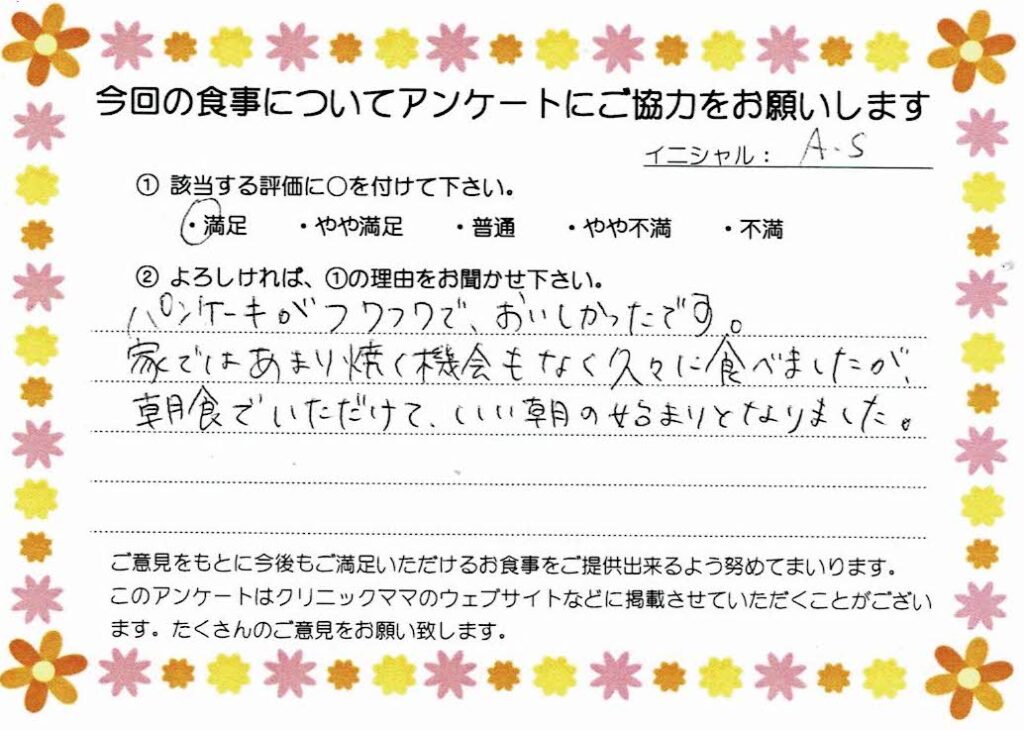 今回の食事についてアンケートにご協力をお願いします
イニシャル： A.S
① 該当する評価に○を付けて下さい。
・満足 ・やや満足 ・普通 ・やや不満 ・不満
② よろしければ、①の理由をお聞かせ下さい。
パンケーキがフワフワで、おいしかったです。
家ではあまり焼く機会もなく久々に食べましたが、
朝食でいただけて、いい朝の始まりとなりました。
ご意見をもとに今後もご満足いただけるお食事をご提供出来るよう努めてまいります。
このアンケートはクリニックママのウェブサイトなどに掲載させていただくことがござい
ます。たくさんのご意見をお願い致します。